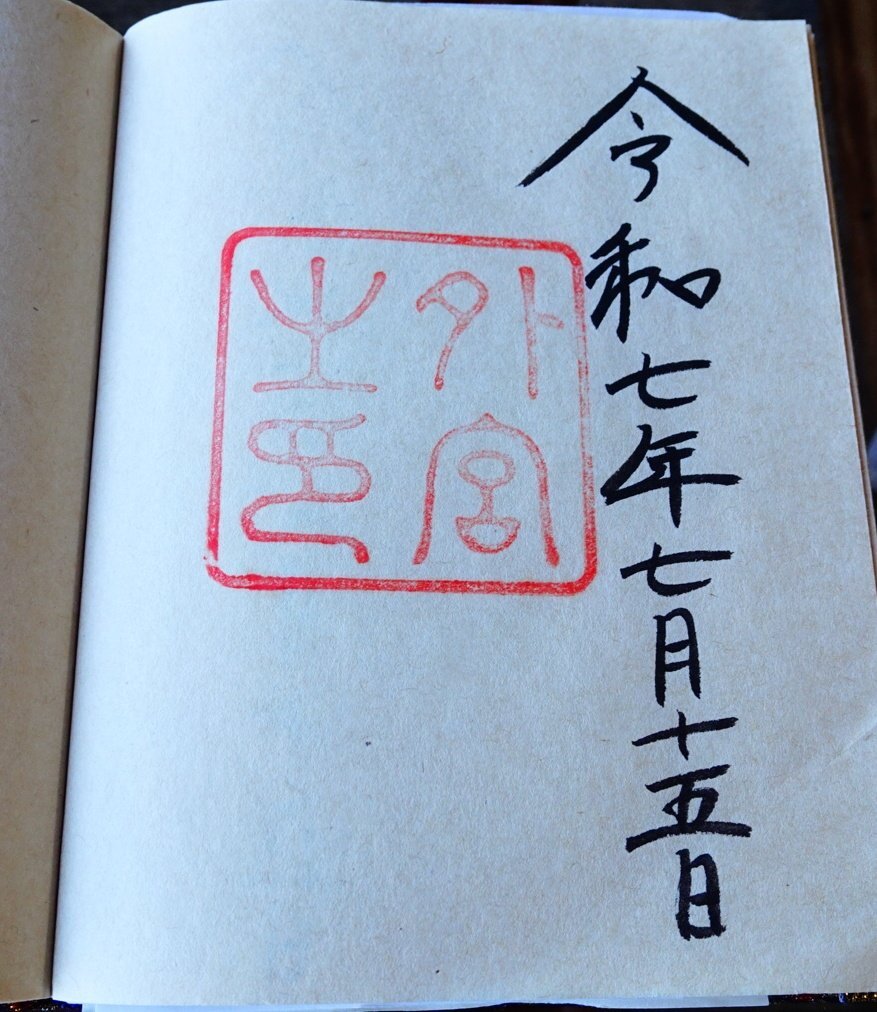 令和七年七月十五日
外宮
之印